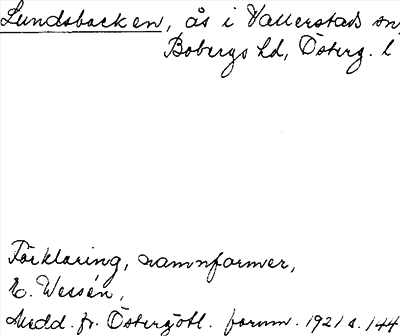 Lundsbacken, ås i Vallerstads sn,
Bobergs hd, Österg. l
Förklaring, namnformer,
E. Wessén,
Medd. fr. Östergötl. fornm. 1921 s. 144